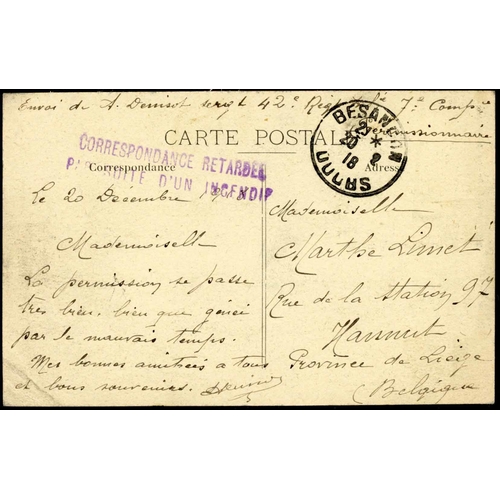 Envoi de A. Denisot sergt 42e Régt d'Inf. 7e Compie
permissionnaire
CARTE POSTALE
BESANÇON
20 * 12
18
DOUBS
CORRESPONDANCE RETARDÉE
PAR SUITE D'UN INCENDIE
Correspondance
Adresse
Le 20 Decembre 1918
Mademoiselle
La permission se passe
très bien, bien que géné
par le mauvais temps.
Mes bonnes amitiées à tous
et bons souvenirs.
Mademoiselle
Marthe Limet
Rue de la Station 97
Hannut
Province de Liège
(Belgique